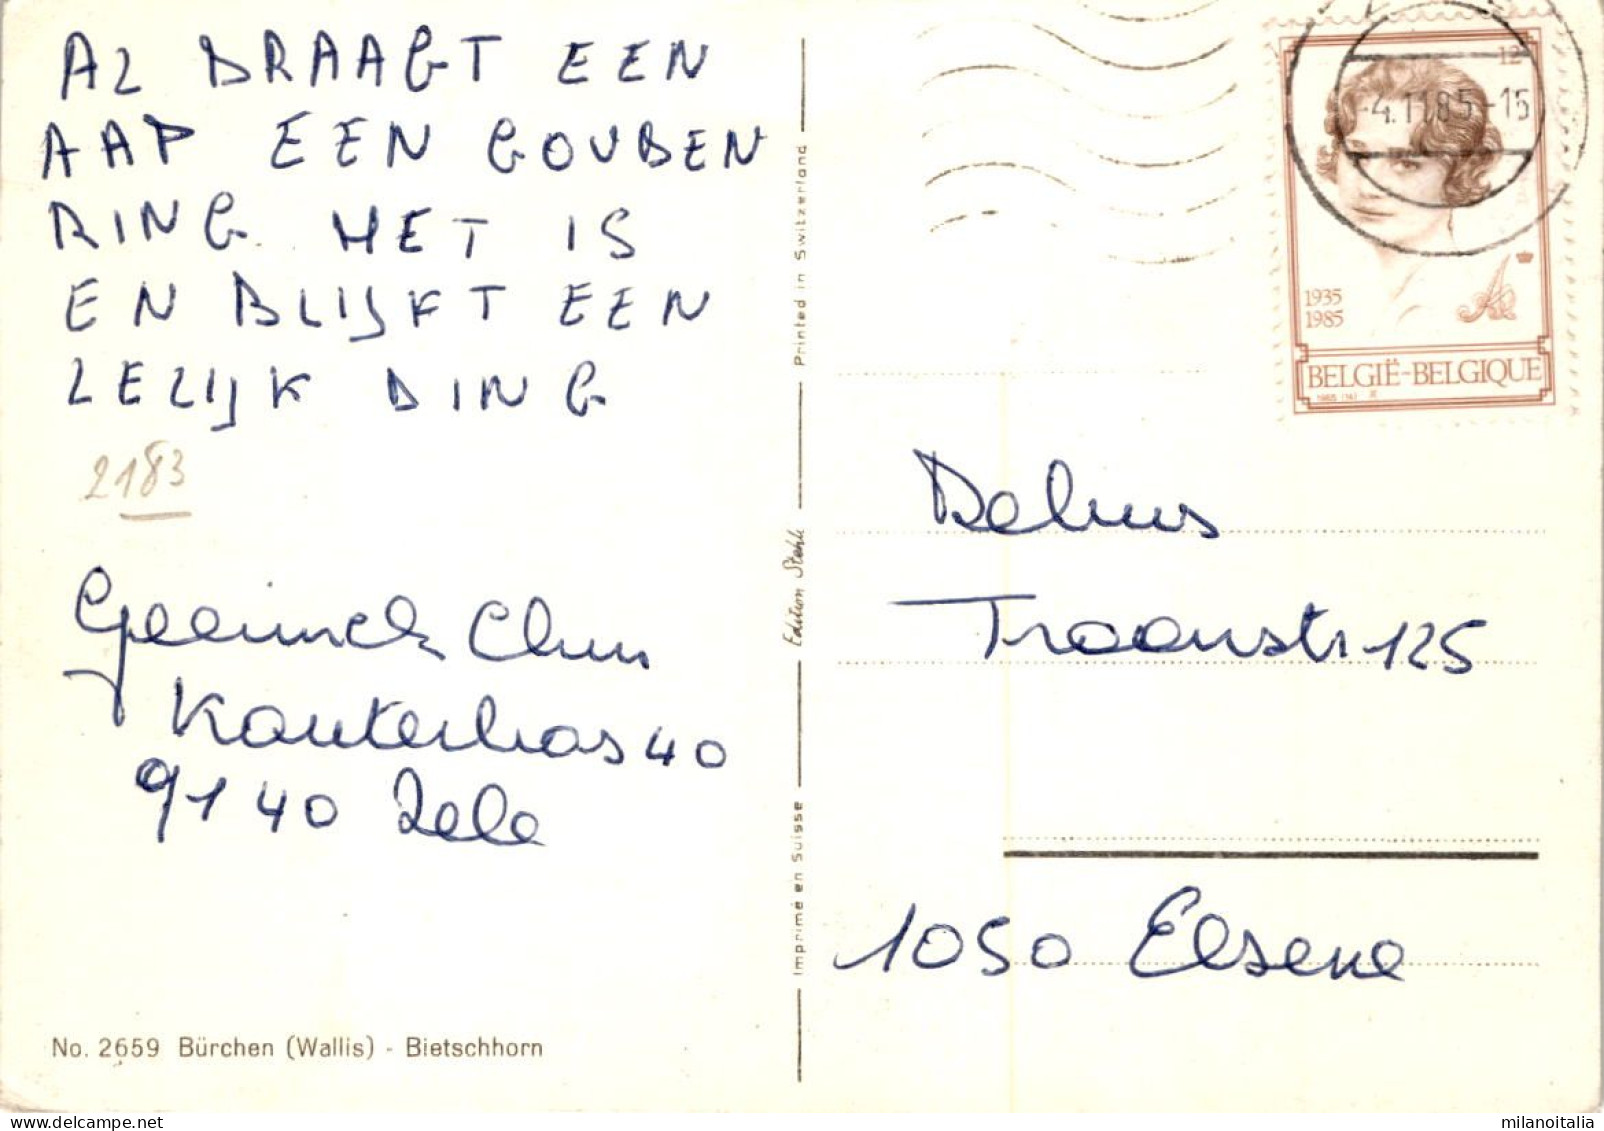 AL DRAAGT EEN
AAP EEN GOUDEN
RING HET IS
EN BLIJFT EEN
LELIJK DING
2183
Geeinck
Kouterbos 40
9140 Zele
No. 2659 Bürchen (Wallis) - Bietschhorn
Printed in Switzerland
Edition Stehli
Imprimé en Suisse
12
-4.11.85-15
1935
1985
BELGIË-BELGIQUE
Troonstr 125
1050 Elsene
milanoitalia